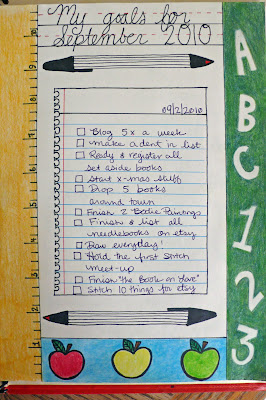 My goals for
September 2010
09/2/2010
Blog 5x a week
make a dent in list
Ready & register all
set aside books
Start x-mas stuff
Drop 5 books
around town
Finish 2 Bodie Paintings
Finish & list all
needlebooks on etsy
Draw everyday!
Hold the first Stitch
meet-up
Finish "the Book on Love"
Stitch 10 things for etsy
A
B
C
1
2
3
9
8
7
6
5
4
3
2
1